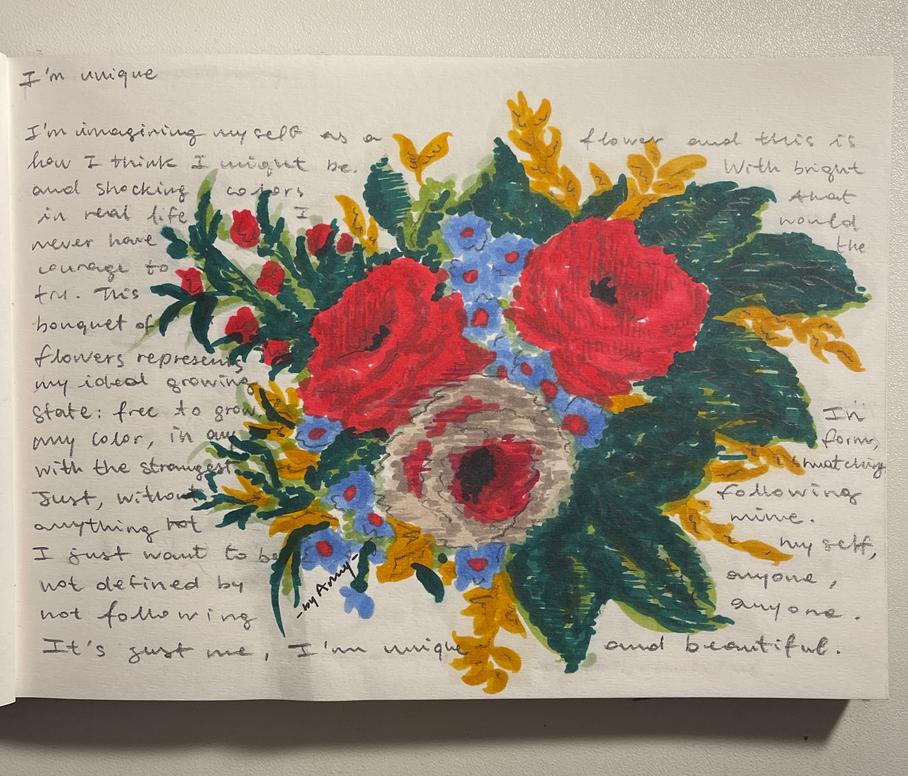 I'm unique
I'm imagining my self as a flower and this is
how I think I might be. With bright
and shocking colors that
in real life I would
never have the
courage to
try. This
bouquet of
flowers represents
my ideal growing
state: free to grow In
my color, in any form,
with the strangest matching
Just, without following
anything not mine.
I just want to be my self,
not defined by anyone,
not following anyone.
It's just me, I'm unique and beautiful.
-by Amy-